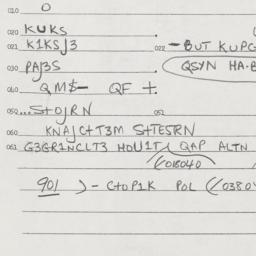 010 O
020 KUKS
021 K1KSJ3 022 - BUT KUPG
030 PAJ3S QSYN HA.B
040 QM$- QF +
052 S+OJRN 052
060 KNAJC++3M S+TESRN
061 G3GR1NCLT3 HDU1T QAP ALTN
(018040
901 ) - C+OP1K POL (03804